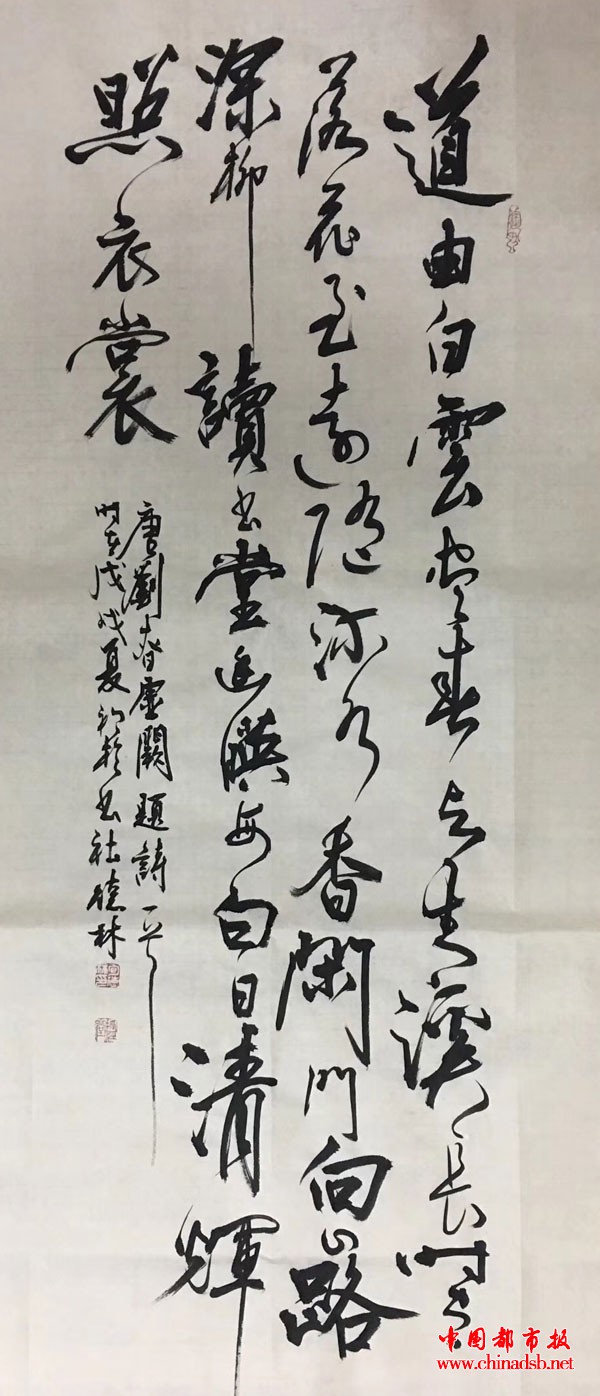 道由白雲盡春与青溪長時有
落花至遠随流水香閑門向山路
深柳讀書堂幽暎每白日清輝
照衣裳
唐劉昚虛闕題詩一首
時在戊戌夏初於書社德林
中国都市报
www.chinadsb.net